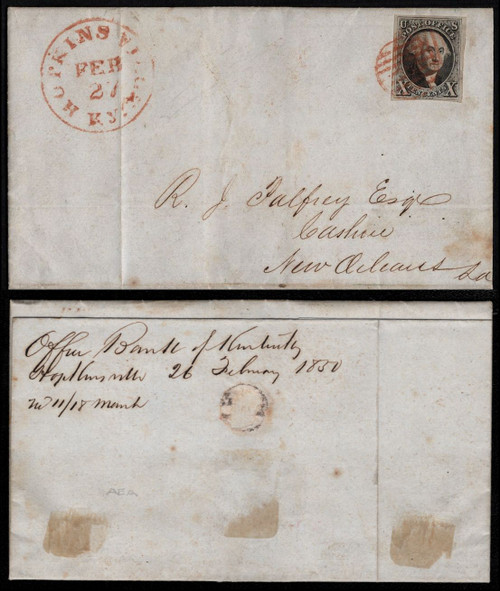 HOPKINSVILLE
FEB
27
KY.
U S
POST OFFICE
X TEN CENTS X
R. J. Palfrey Esq
Cashier
New Orleans
La
Office Bank of Kentucky
Hopkinsville 26 February 1850
11/18 March